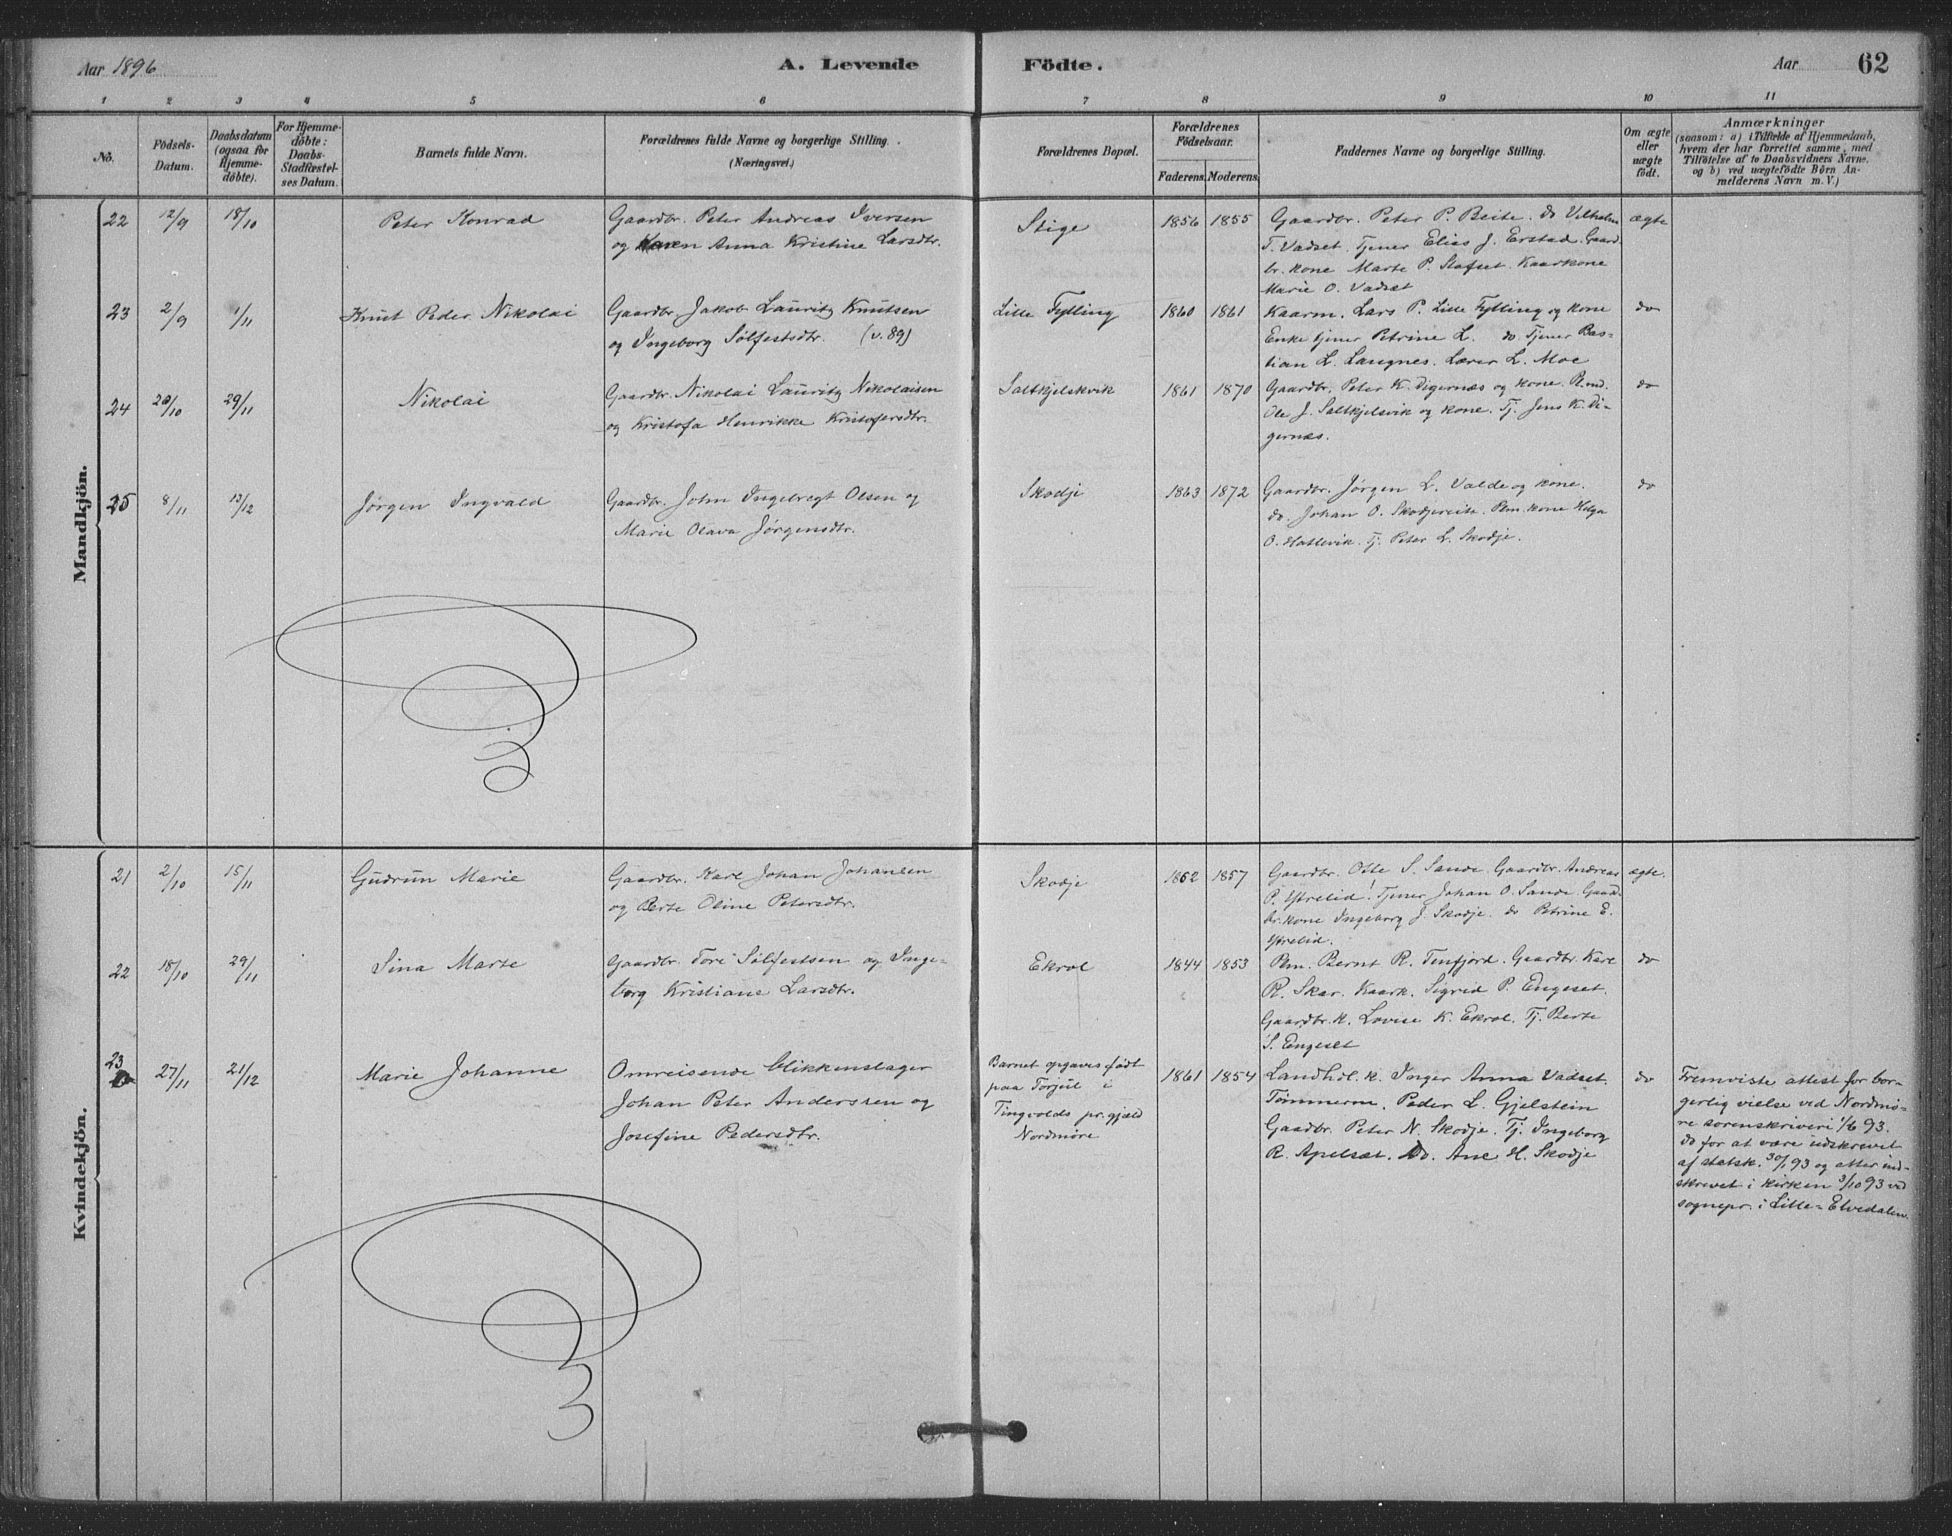 Aar 1896 A. Levende Födte. Aar 62
1 2 3 4 5 6 7 8 9 10 11
No. Födsels-Datum. Daabsdatum (ogsaa for Hjemme-döbte). For Hjemme-döbte: Daabs-Stadfæstel-ses Datum. Barnets fulde Navn. Forældrenes fulde Navne og borgerlige Stilling. (Næringsvei.) Forældrenes Bopæl. Forældrenes Födselsaar. Faderens. Moderens. Faddernes Navne og borgerlige Stilling. Om ægte eller uægte födt. Anmærkninger (saasom: a) i Tilfælde af Hjemmedaab, hvem der har forrettet samme, med Tilföielse af to Daabsvidners Navne. og b) ved uægtefödte Börn An-melderens Navn m. V.)
Mandkjön.
22 12/9 18/10 Peter Konrad
Gaardbr. Peter Andreas Iversen
og Karen Anna Kristine Larsdtr.
Stige 1856 1855
Gaardbr. Peter P. Beite. do Vilhelm
T. Vadset. Tjener Elias J. Erstad. Gaard
br. kone Marte P. Stafset. Kaarkone
Marie O. Vadset
ægte
23 2/9 1/11 Knut Peder Nikolai
Gaardbr. Jakob Lauritz Knutsen
og Ingeborg Sølfestsdtr. (v. 89)
Lille Fylling 1860 1861
Kaarm. Lars P. Lille Fylling og kone
Enke tjener Petrine L. do Tjener Bas-
tian L. Langnes. Lærer L. Moe
do
24 20/10 29/11 Nikolai
Gaardbr. Nikolai Lauritz Nikolaisen
og Kristofa Henrikke Kristofersdtr.
Saltkjelskvik 1861 1870
Gaardbr. Peter K. Digernæs og kone. Pl.md.
Ole J. Saltkjelsvik og kone. Tj. Jens K. Di-
gernæs.
do
25 8/11 13/12 Jørgen Ingvald
Gaardbr. John Ingebregt Olsen og
Marie Olava Jørgensdtr.
Skodje 1863 1872
Gaardbr. Jørgen L. Valde og kone.
do. Johan O. Skodjereite. Pm. kone Helga
O. Hattevik. Tj. Peter L. Skodje.
do
Kvindekjön.
21 2/10 15/11 Gudrun Marie
Gaardbr. Karl Johan Johansen
og Berte Oline Petersdtr.
Skodje 1862 1857
Gaardbr. Olle S. Sande. Gaardbr. Andreas
P. Ytrelid. Tjener Johan O. Sande. Gaard
br. kone Ingeborg J. Skodje. do Petrine E.
Ytrelid.
ægte.
22 18/10 29/11 Sina Marte
Gaardbr. Tore Sølfestsen og Inge-
borg Kristiane Larsdtr.
Ekrol 1844 1853
Pm. Bernt R. Tenfjord. Gaardbr. Karl
R. Skar. Kaark. Sigrid P. Engeset.
Gaardbr. k. Lovise K. Ekrol. Tj. Berte
S. Engeset
do
23 27/11 21/12 Marie Johanne
Omreisende blikkenslager
Johan Peter Anderssen og
Josefine Pedersdtr.
Barnet opgaves født
paa Torjul i
Tingvolds pr. gjæld
Nordmøre
1861 1854
Landhdl. k. Inger Anna Vadset.
Tømmerm. Peder L. Gjelstein
Gaardbr. Peter N. Skodje. Tj. Ingeborg
R. Apelsæt. Do. Ane H. Skodje
do
Fremviste attest for bor-
gerlig vielse ved Nordmø-
re sorenskriveri 1/6 93.
do for at være udskrevet
af statsk. 30/1 93 og atter ind-
skrevet i kirken 3/10 93 ved
sognepr. i Lille-Elvedalen.